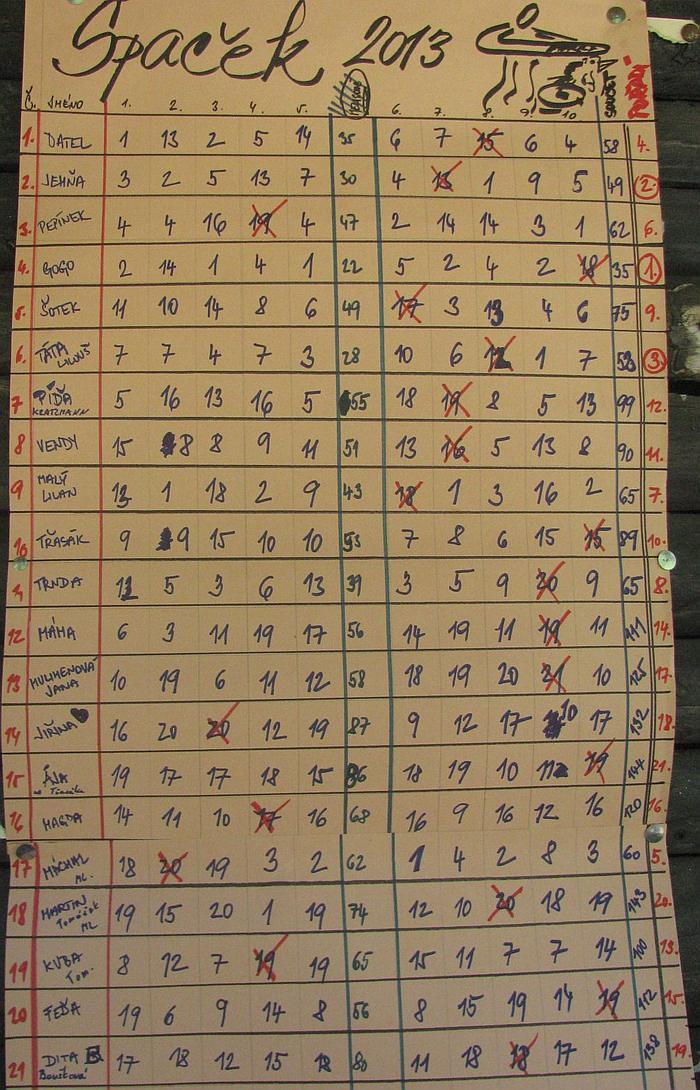 Špaček 2013
Č. JMÉNO 1. 2. 3. 4. 5. 6. 7. 8. 9. 10 SOUČET
1. DATEL 1 13 2 5 14 35 6 7 15 6 4 58 4.
2. JEHŇA 3 2 5 13 7 30 4 13 1 9 5 49 2.
3. PEPÍNEK 4 4 16 19 4 47 2 14 14 3 1 62 6.
4. GOGO 2 14 1 4 1 22 5 2 4 2 18 35 1.
5. ŠOTEK 11 10 14 8 6 49 17 3 13 4 6 75 9.
6. TÁTA 7 7 4 7 3 28 10 6 12 1 7 3.
7 PÍĎA KRATZMANN 5 16 13 16 5 55 18 19 8 5 13 99 12.
8 VENDY 15 8 8 9 11 51 13 16 5 13 8 90 11.
9 MALÝ LILAN 13 1 18 2 9 43 18 1 3 16 2 65 7.
10 TŘASÁK 9 9 15 10 10 53 7 8 6 15 15 89 10.
11 TRNDA 12 5 3 6 13 39 3 5 9 20 9 65 8.
12 MÁMA 6 3 11 19 17 56 14 19 11 19 11 111 14.
13 MULMENOVÁ JANA 10 19 6 11 12 58 18 19 20 21 10 125 17.
14 JIŘINA 16 20 20 12 19 87 9 12 17 10 17 132 18.
15 ÁJA 19 17 17 18 15 86 18 19 10 12 19 144 21.
16 MAGDA 14 11 10 17 16 68 16 9 16 12 16 120 16.
17 MÁCHAL ML. 18 20 19 3 2 62 1 4 2 8 3 60 5.
18 MARTIN Tomášek ML 19 15 20 1 19 74 12 10 20 18 19 143 20.
19 KUBA Tom. 8 12 7 19 19 65 15 11 7 7 14 100 13.
20 FEĎA 19 6 9 14 8 56 8 15 19 14 19 112 15.
21 DITA 17 18 12 15 18 80 11 18 18 17 12 138 19.